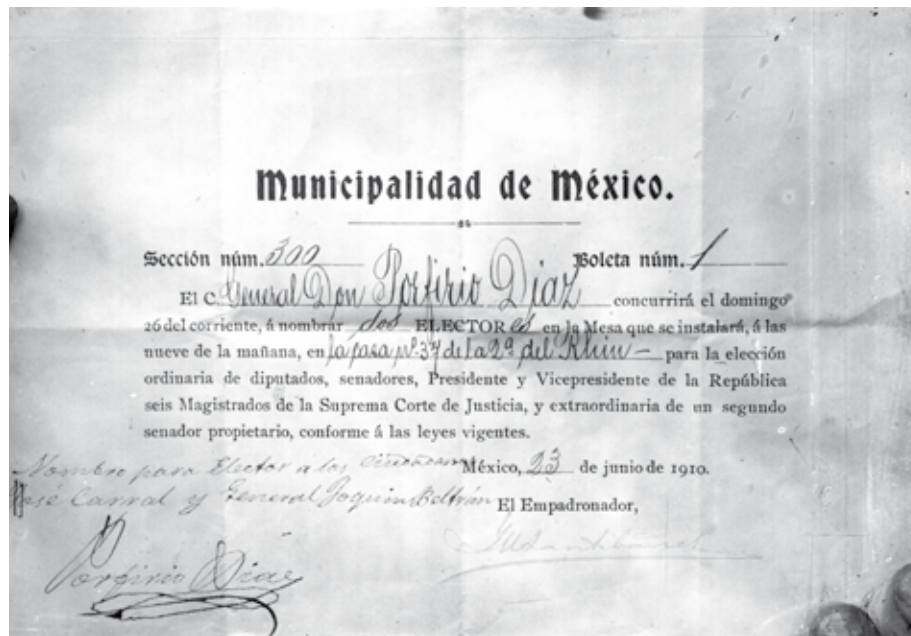 Municipalidad de México.
Sección núm. 300 Boleta núm. 1
El C. General Don Porfirio Díaz concurrirá el domingo
26 del corriente, á nombrar dos ELECTORes en la Mesa que se instalará, á las
nueve de la mañana, en la casa nº. 37 de la 2ª del Rhin — para la elección
ordinaria de diputados, senadores, Presidente y Vicepresidente de la República
seis Magistrados de la Suprema Corte de Justicia, y extraordinaria de un segundo
senador propietario, conforme á las leyes vigentes.
México, 23 de junio de 1910.
Nombro para Elector a los ciudadanos
José Carral y General Joaquin Beltrán
El Empadronador,
Porfirio Díaz